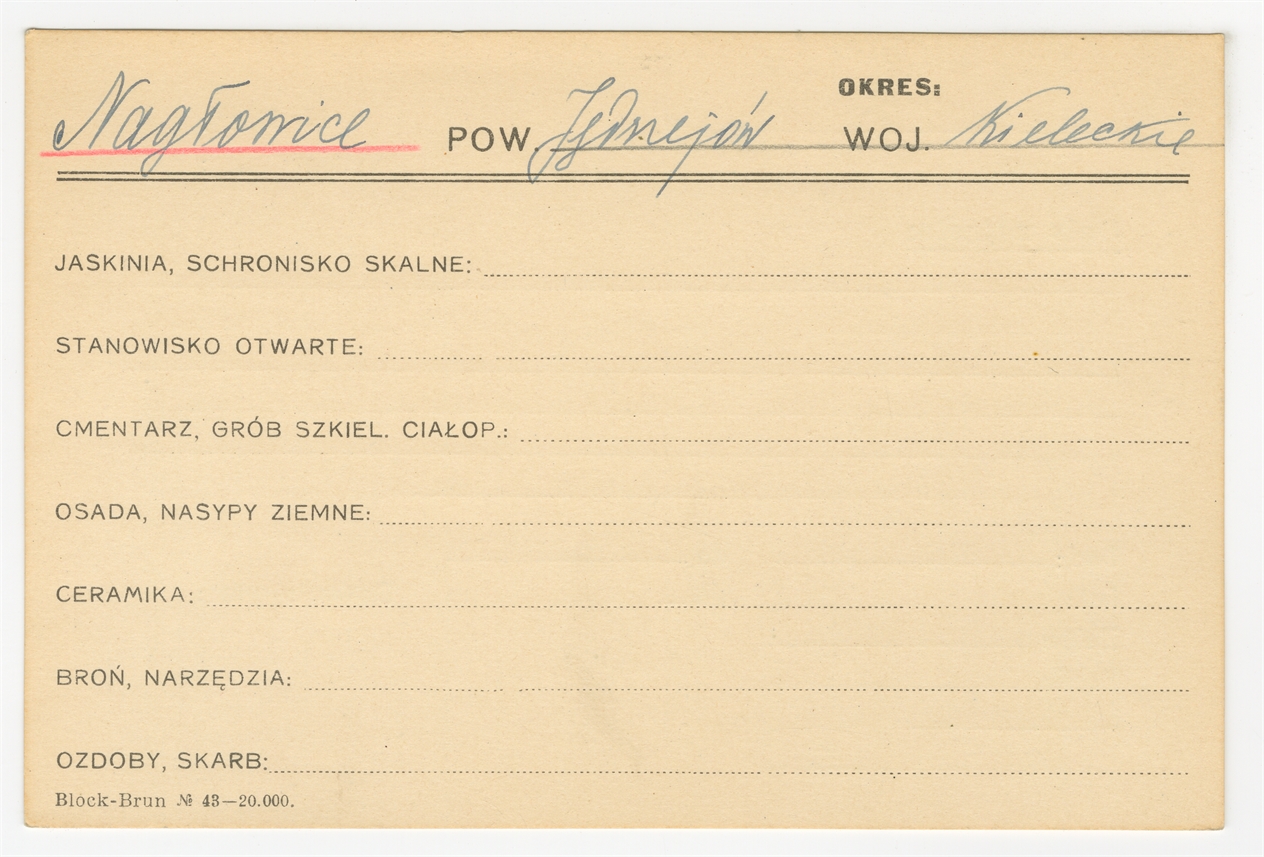 OKRES:
Nagłowice POW. Jędrzejów WOJ. Kieleckie
JASKINIA, SCHRONISKO SKALNE:
STANOWISKO OTWARTE:
CMENTARZ, GRÓB SZKIEL. CIAŁOP.:
OSADA, NASYPY ZIEMNE:
CERAMIKA:
BROŃ, NARZĘDZIA:
OZDOBY, SKARB:
Block-Brun № 43—20.000.